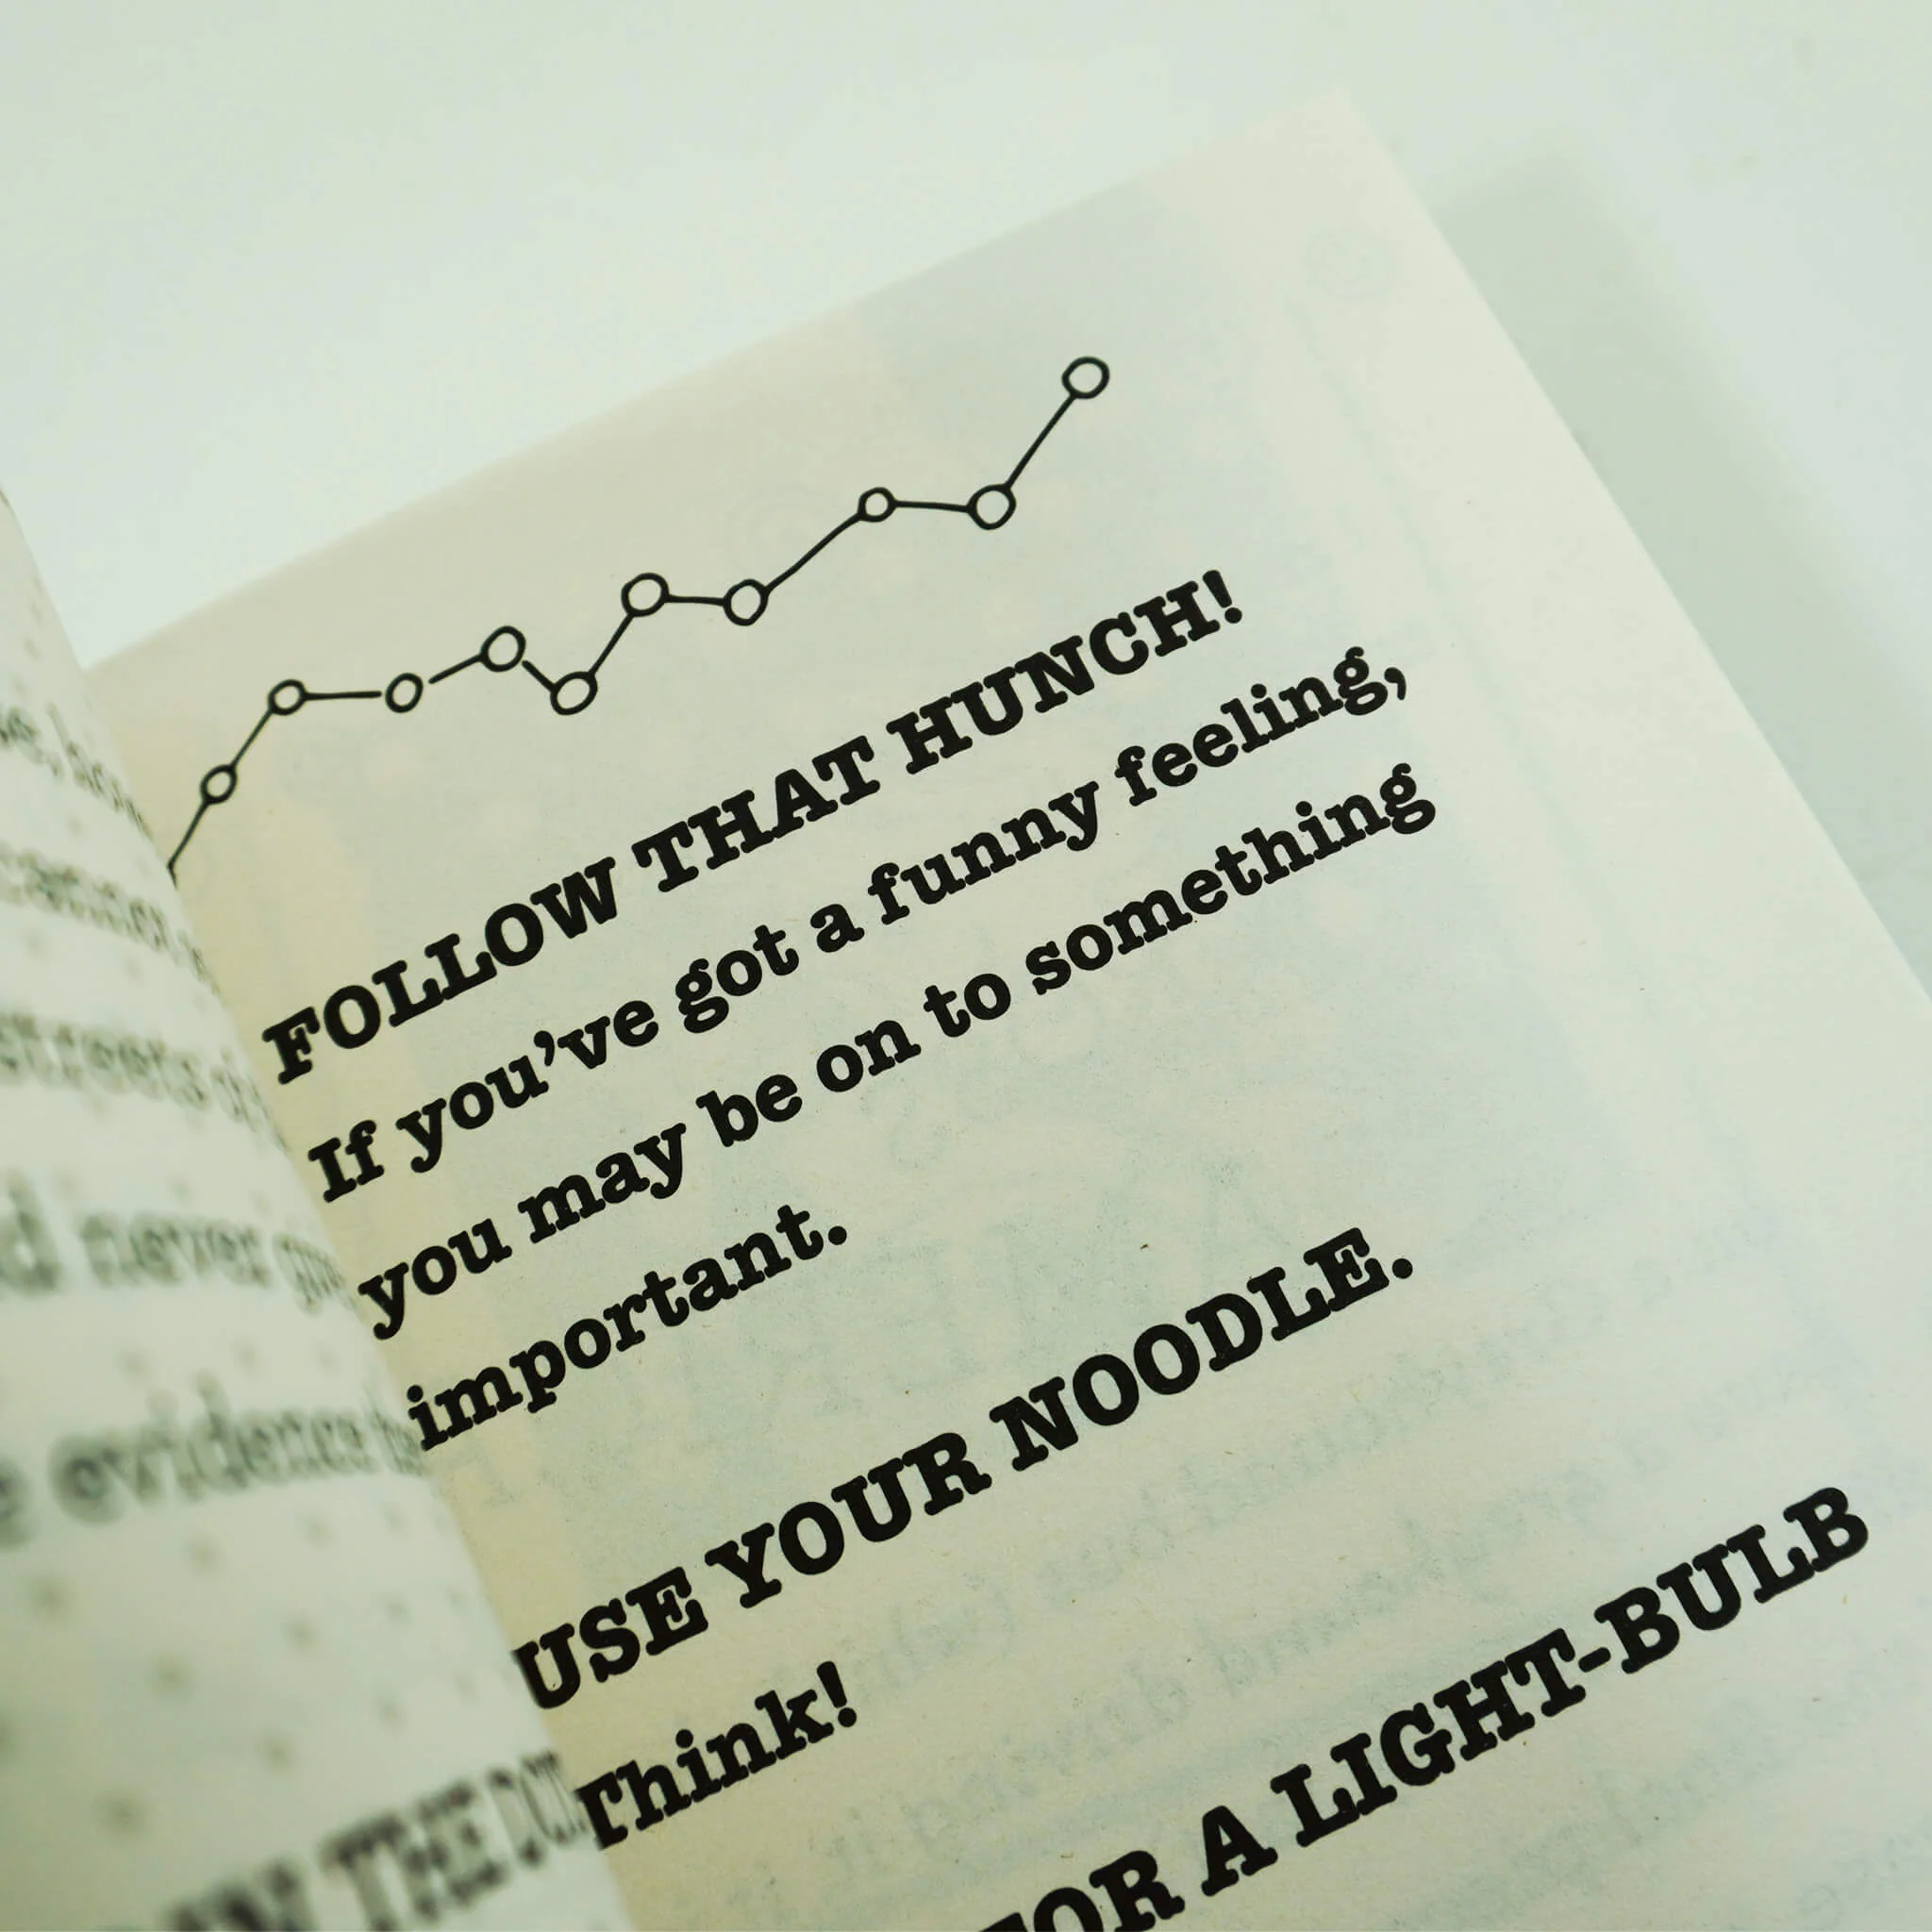 streets
d never
evidence
THE
FOLLOW THAT HUNCH!
If you've got a funny feeling,
you may be on to something
important.
USE YOUR NOODLE.
Think!
FOR A LIGHT-BULB